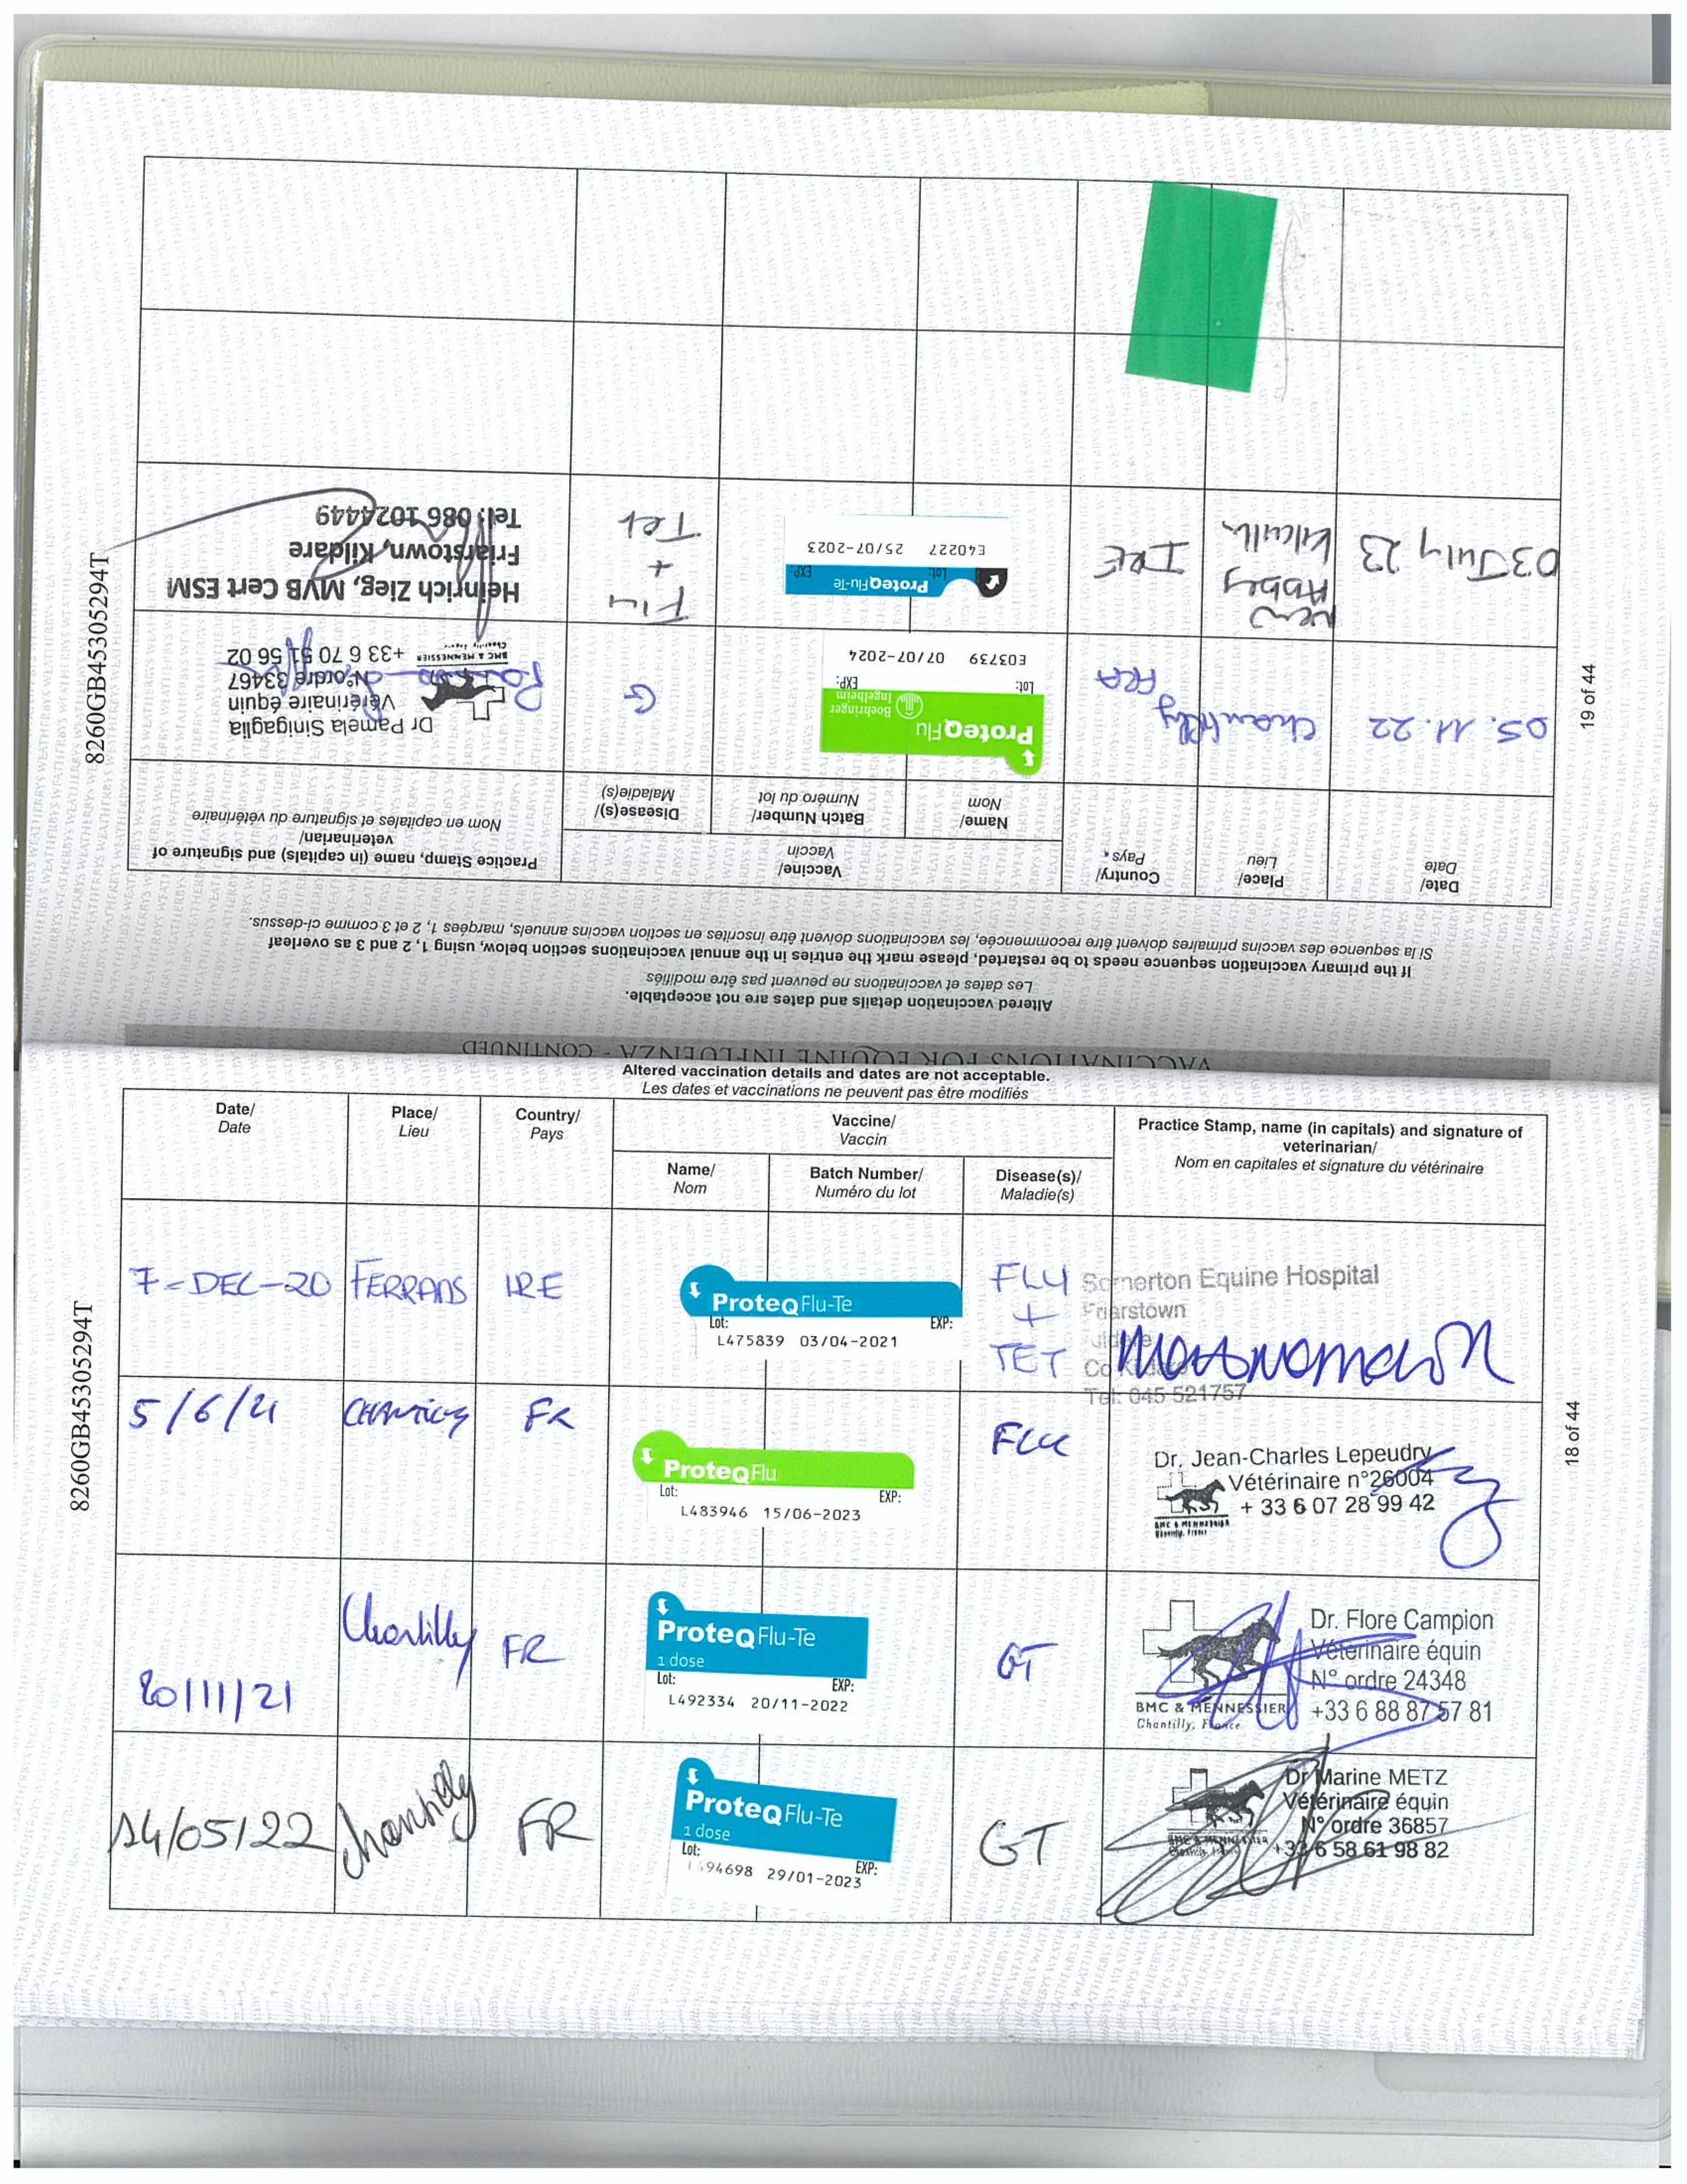 8260GB45305294T
19 of 44
VACCINATIONS FOR EQUINE INFLUENZA - CONTINUED
Altered vaccination details and dates are not acceptable.
Les dates et vaccinations ne peuvent pas être modifiés
If the primary vaccination sequence needs to be restarted, please mark the entries in the annual vaccinations section below, using 1, 2 and 3 as overleaf
Si la sequence des vaccins primaires doivent être recommencée, les vaccinations doivent être inscrites en section vaccins annuels, marqées 1, 2 et 3 comme ci-dessus.
Date/
Date
Place/
Lieu
Country/
Pays
Vaccine/
Vaccin
Name/
Nom
Batch Number/
Numéro du lot
Disease(s)/
Maladie(s)
Practice Stamp, name (in capitals) and signature of
veterinarian/
Nom en capitales et signature du vétérinaire
05.11.22
Chantilly
FRA
ProteqFlu
Boehringer
Ingelheim
Lot: EXP:
E03739 07/07-2024
G
Dr Pamela Sinigaglia
Vétérinaire équin
N°ordre 33467
+33 6 70 51 56 02
BMC & MENNESSIER
Chantilly, France
03 July 23
New
Abbey
Kilcullen
IRE
ProteqFlu-Te
Lot: EXP:
E40227 25/07-2023
Flu
+
Tet
Heinrich Zieg, MVB Cert ESM
Friarstown, Kildare
Tel: 086 1024449
8260GB45305294T
18 of 44
Altered vaccination details and dates are not acceptable.
Les dates et vaccinations ne peuvent pas être modifiés
Date/
Date
Place/
Lieu
Country/
Pays
Vaccine/
Vaccin
Name/
Nom
Batch Number/
Numéro du lot
Disease(s)/
Maladie(s)
Practice Stamp, name (in capitals) and signature of
veterinarian/
Nom en capitales et signature du vétérinaire
7-DEC-20
FERRANS
IRE
ProteqFlu-Te
Lot: EXP:
L475839 03/04-2021
FLU
+
TET
Somerton Equine Hospital
Friarstown
Kildare
Co Kildare
Tel: 045 521757
5/6/21
CHANTILLY
FR
ProteqFlu
Lot: EXP:
L483946 15/06-2023
FLU
Dr. Jean-Charles Lepeudry
Vétérinaire n°26004
+ 33 6 07 28 99 42
BMC & MENNESSIER
Chantilly, France
20/11/21
Chantilly
FR
ProteqFlu-Te
1 dose
Lot: EXP:
L492334 20/11-2022
GT
Dr. Flore Campion
Vétérinaire équin
N° ordre 24348
+33 6 88 87 57 81
BMC & MENNESSIER
Chantilly, France
14/05/22
Chantilly
FR
ProteqFlu-Te
1 dose
Lot: EXP:
L494698 29/01-2023
GT
Dr Marine METZ
Vétérinaire équin
N° ordre 36857
+33 6 58 61 98 82
BMC & MENNESSIER
Chantilly, France